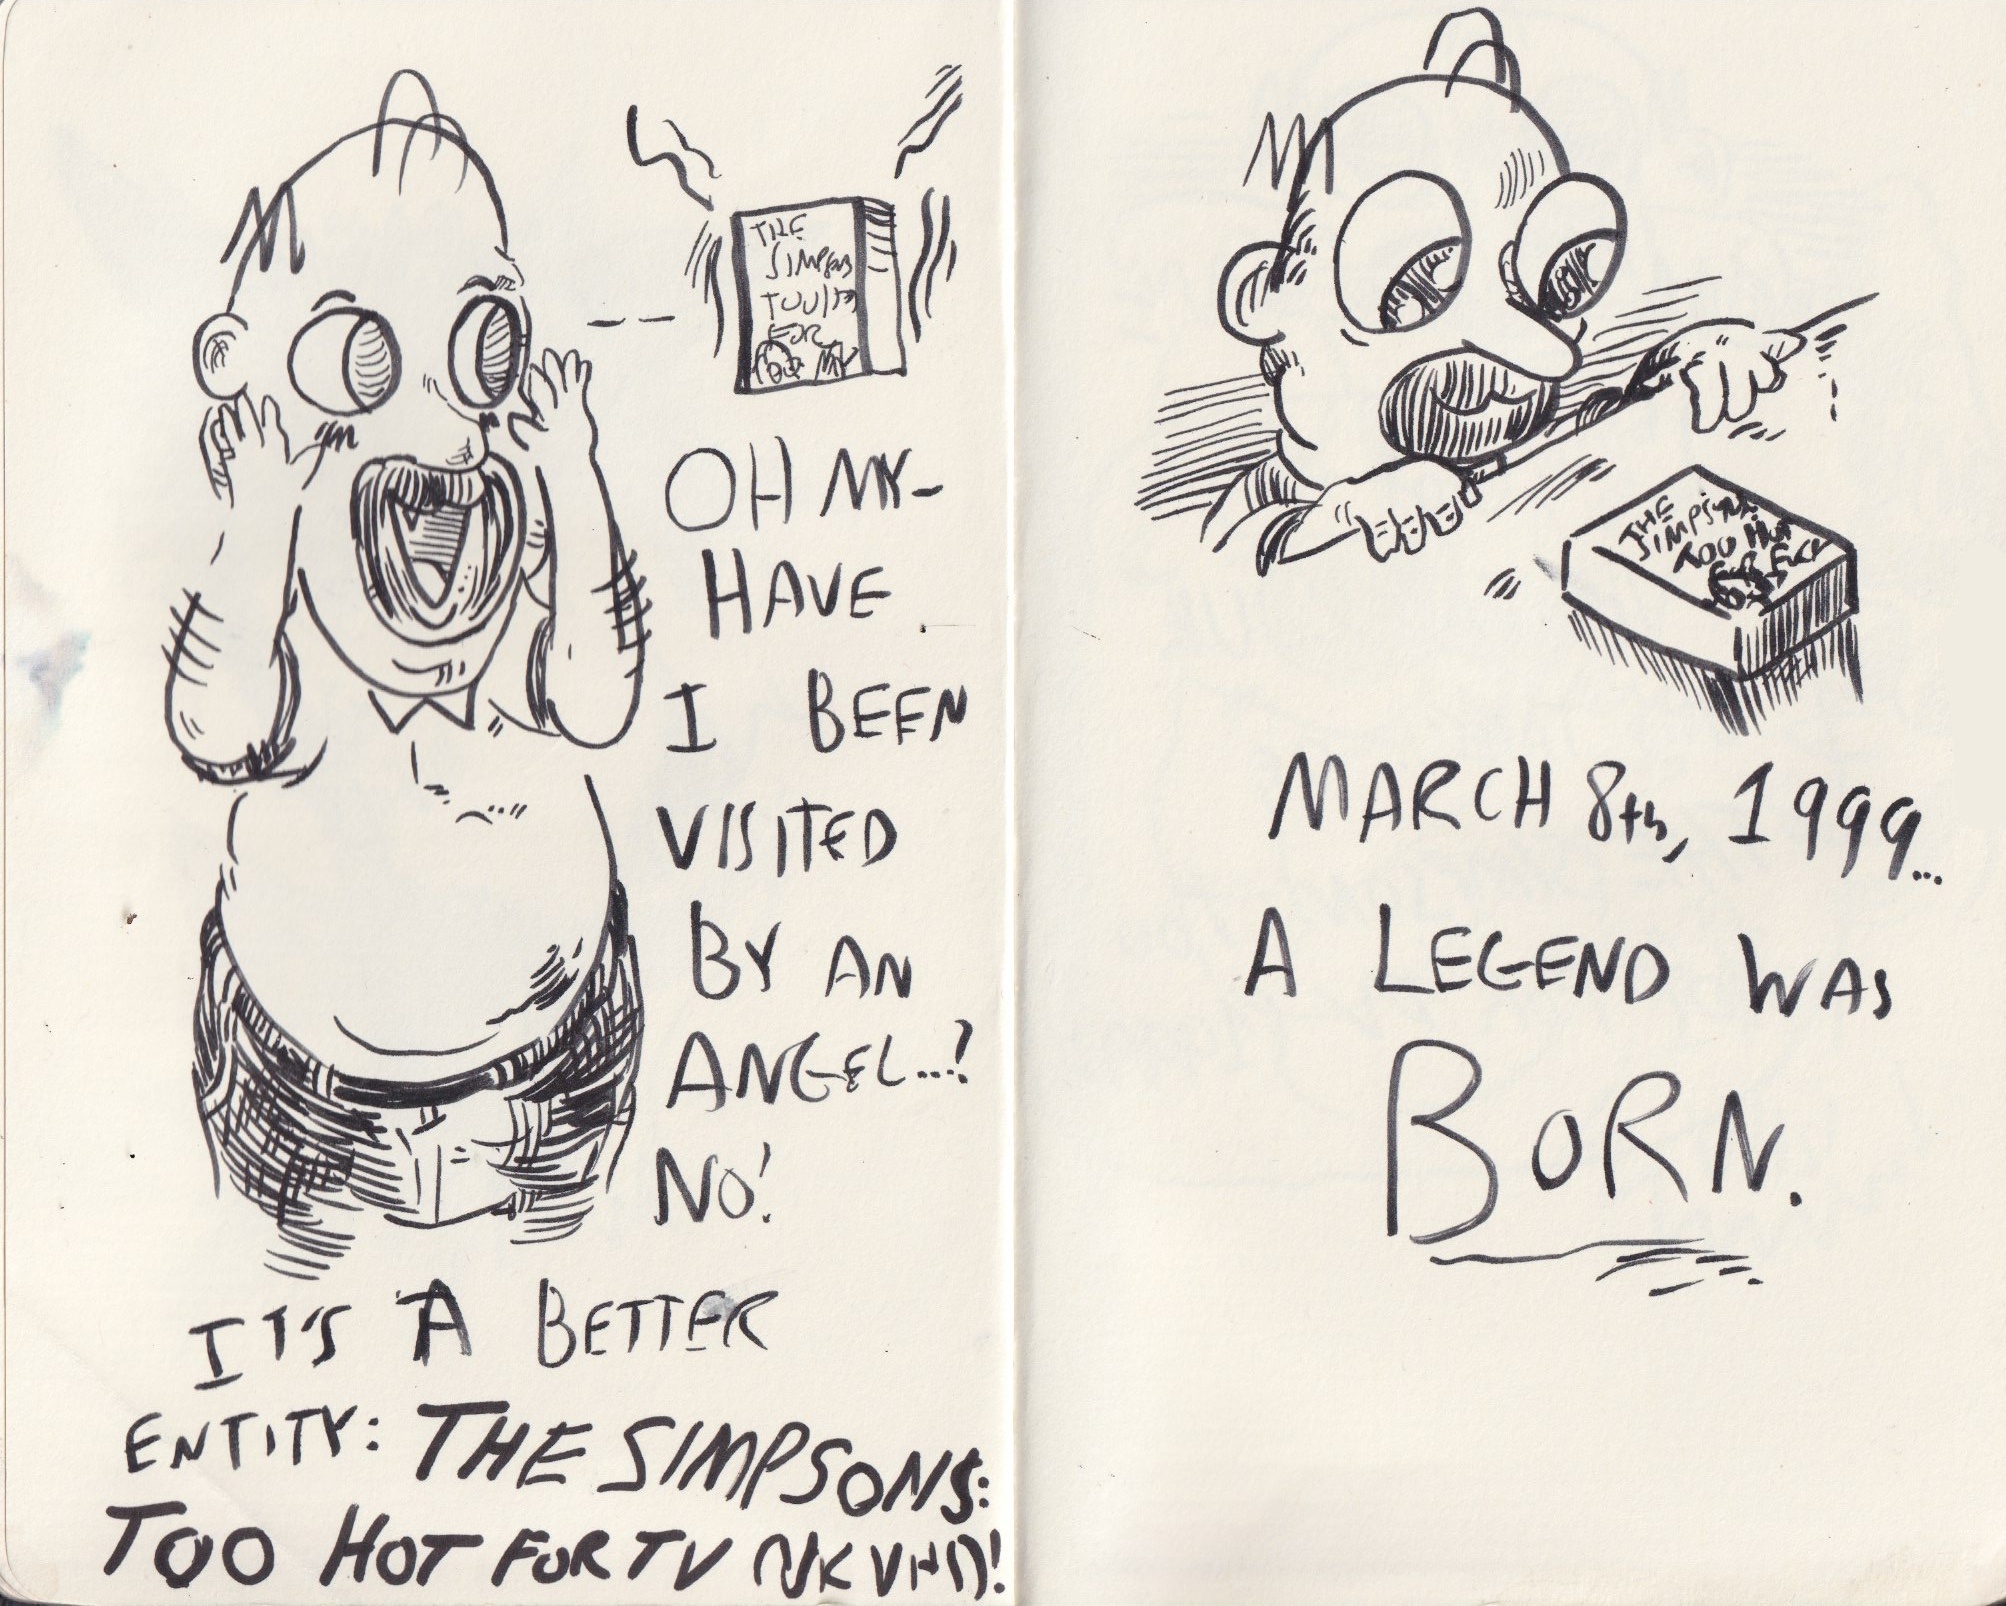 THE
SIMPSONS
TOO
FOR
OH MY-
HAVE
I BEEN
VISITED
BY AN
ANGEL...?
NO!
IT'S A BETTER
ENTITY: THE SIMPSONS:
TOO HOT FOR TV UK VHS!
THE
SIMPSONS
TOO HOT
FOR
MARCH 8th, 1999...
A LEGEND WAS
BORN.